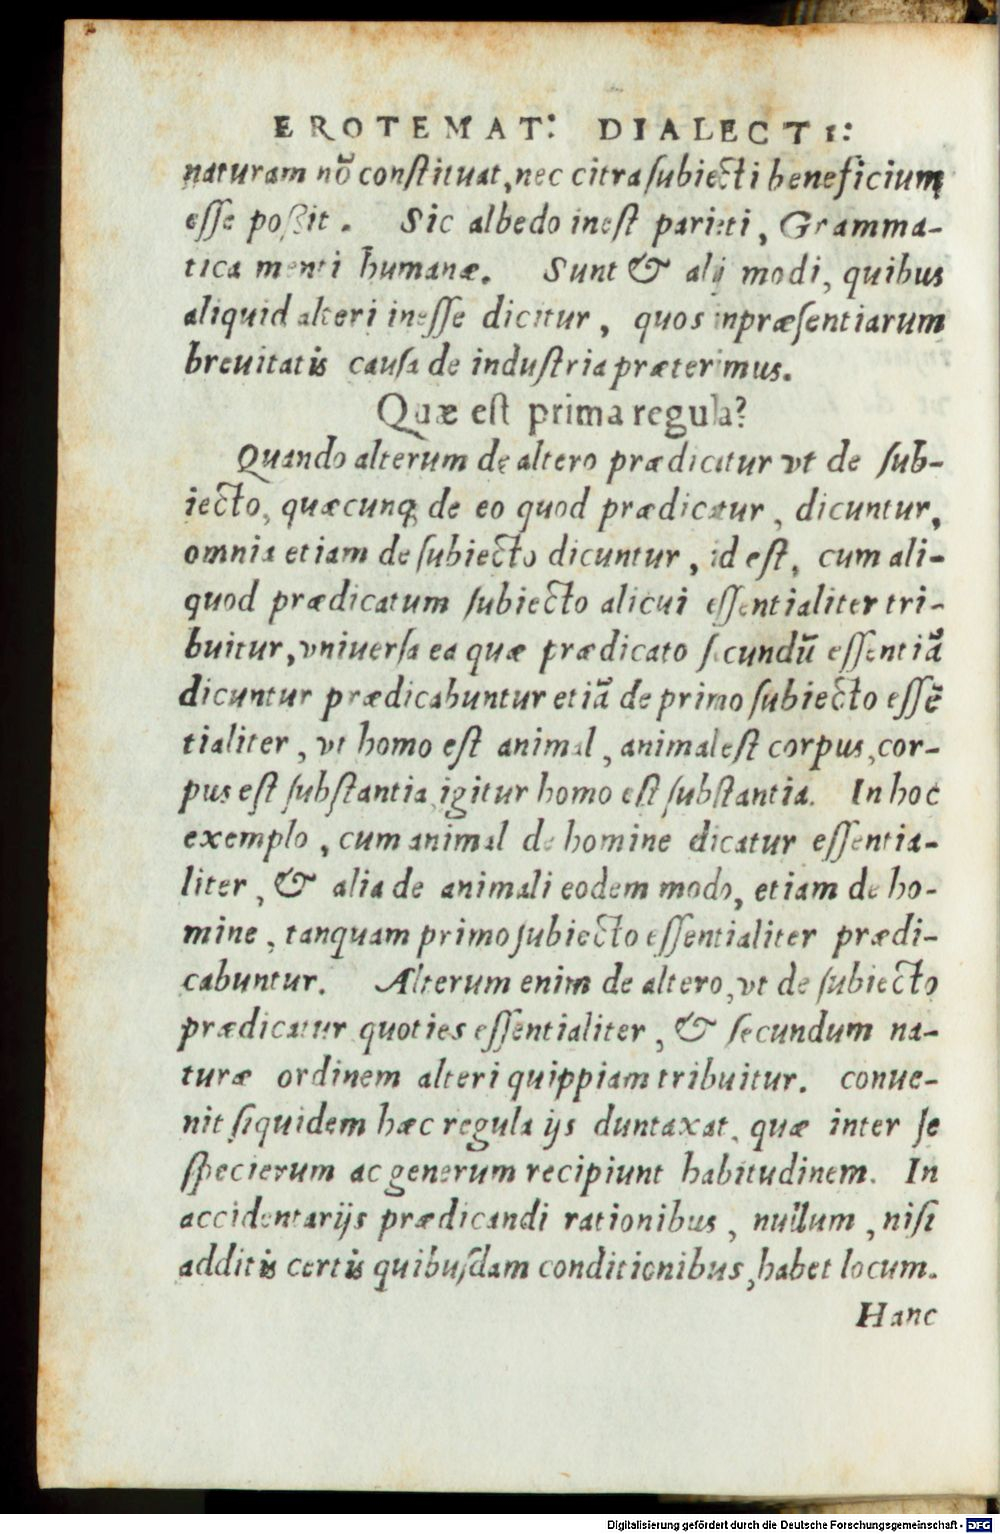 EROTEMAT: DIALECTI:
naturam nõ conſtituat, nec citra ſubiecti beneficium
eſſe poßit. Sic albedo ineſt parieti, Gramma-
tica menti humanæ. Sunt & alij modi, quibus
aliquid alteri ineſſe dicitur, quos inpræſentiarum
breuitatis cauſa de induſtria præterimus.
Quæ eſt prima regula?
Quando alterum de altero prædicitur vt de ſub-
iecto, quæcunq; de eo quod prædicatur, dicuntur,
omnia etiam de ſubiecto dicuntur, id eſt, cum ali-
quod prædicatum ſubiecto alicui eſſentialiter tri-
buitur, vniuerſa ea quæ prædicato ſecundũ eſſentiã
dicuntur prædicabuntur etiã de primo ſubiecto eſſẽ
tialiter, vt homo eſt animal, animal eſt corpus, cor-
pus eſt ſubſtantia, igitur homo eſt ſubſtantia. In hoc
exemplo, cum animal de homine dicatur eſſentia-
liter, & alia de animali eodem modo, etiam de ho-
mine, tanquam primo ſubiecto eſſentialiter prædi-
cabuntur. Alterum enim de altero, vt de ſubiecto
prædicatur quoties eſſentialiter, & ſecundum na-
turæ ordinem alteri quippiam tribuitur. conue-
nit ſiquidem hæc regula ijs duntaxat, quæ inter ſe
ſpecierum ac generum recipiunt habitudinem. In
accidentarijs prædicandi rationibus, nullum, niſi
additis certis quibuſdam conditionibus, habet locum.
Hanc
Digitalisierung gefördert durch die Deutsche Forschungsgemeinschaft - DFG